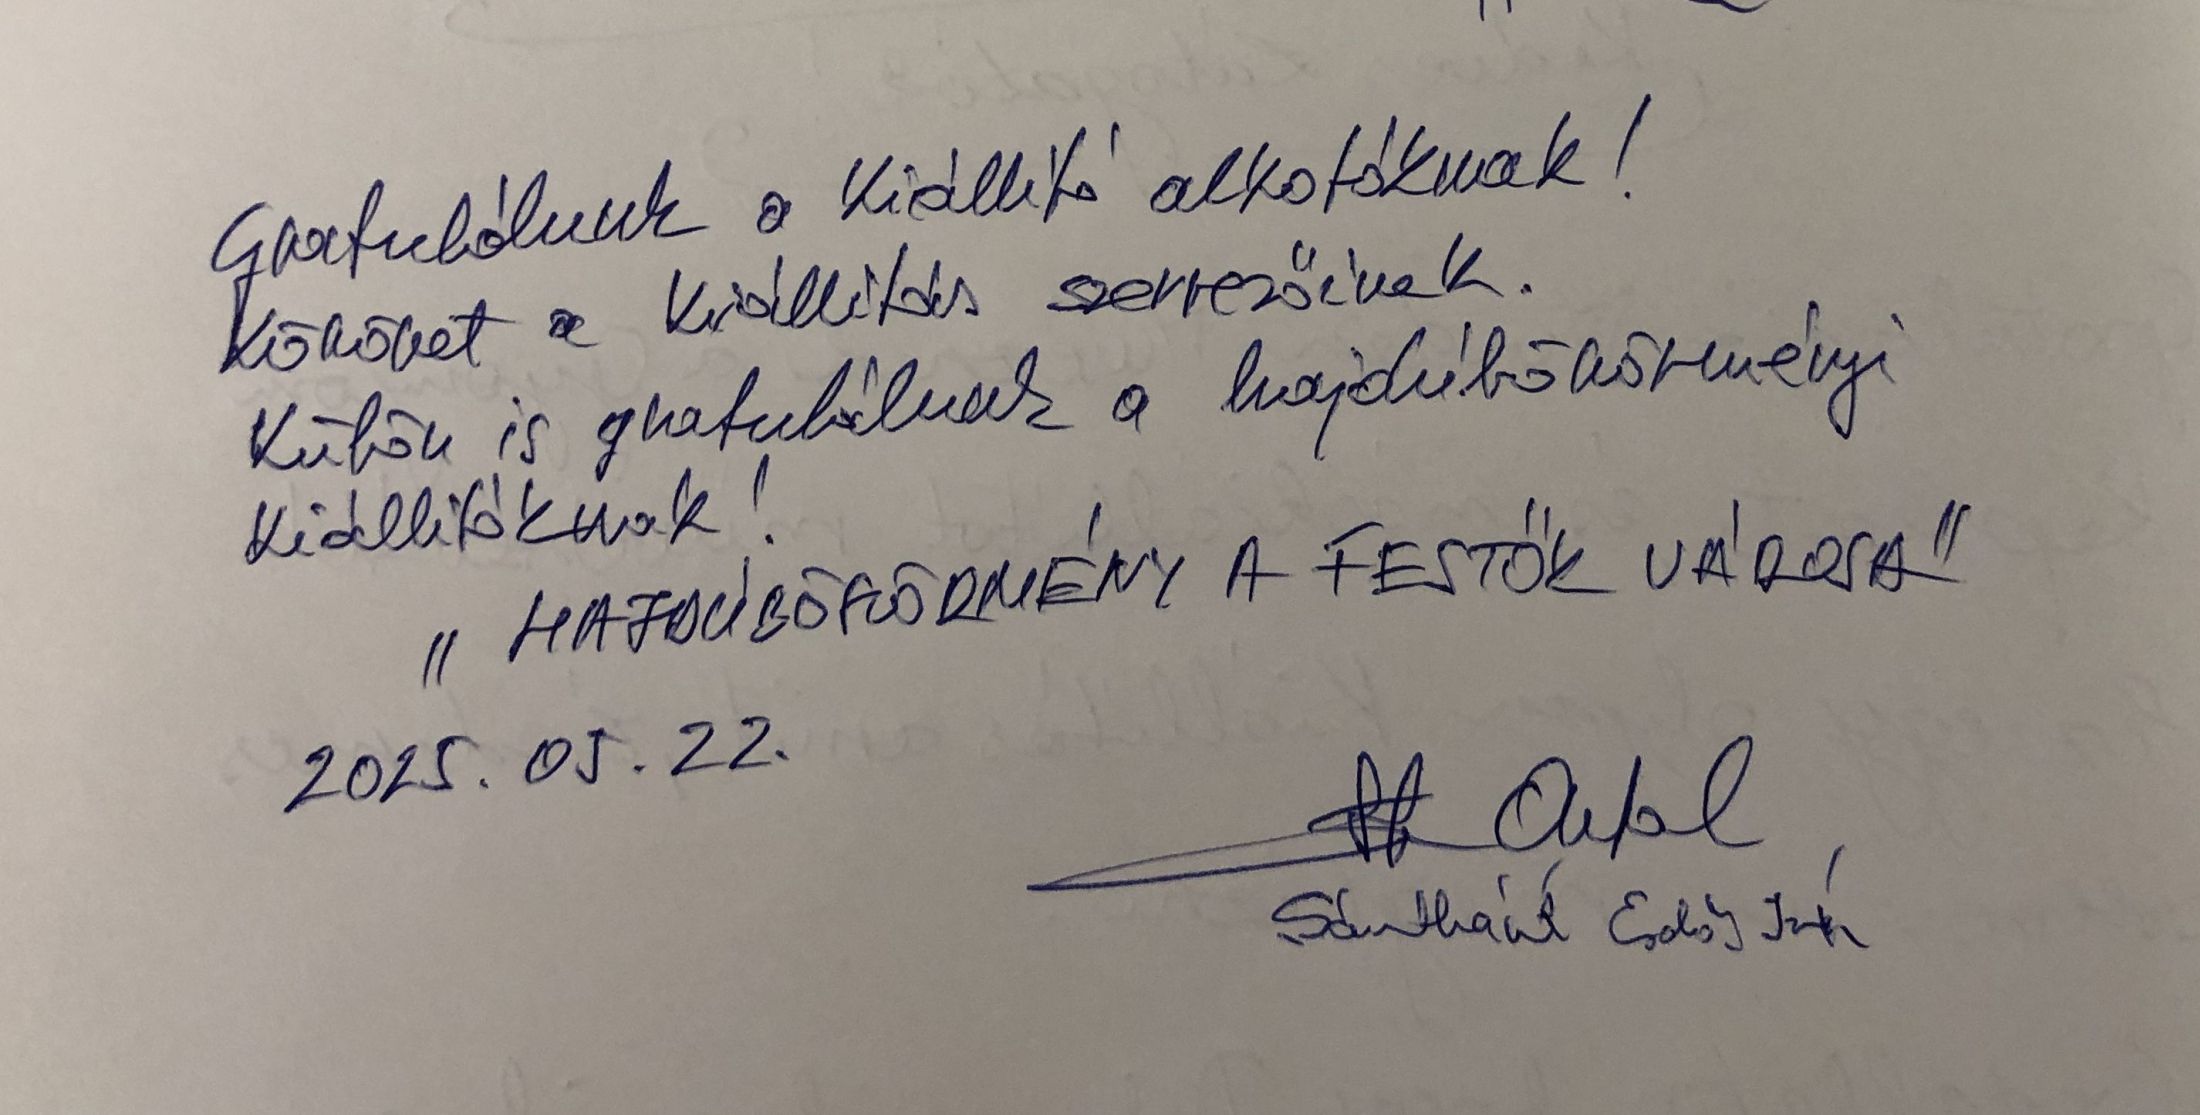 Gratulálunk a kiállító alkotóknak!
Köszönet a kiállítás szervezőinek.
Külön is gratulálunk a hajdúböszörményi
kiállítóknak!
„HAJDÚBÖSZÖRMÉNY A FESTŐK VÁROSA”
2025. 05. 22.
Antal
Erdős